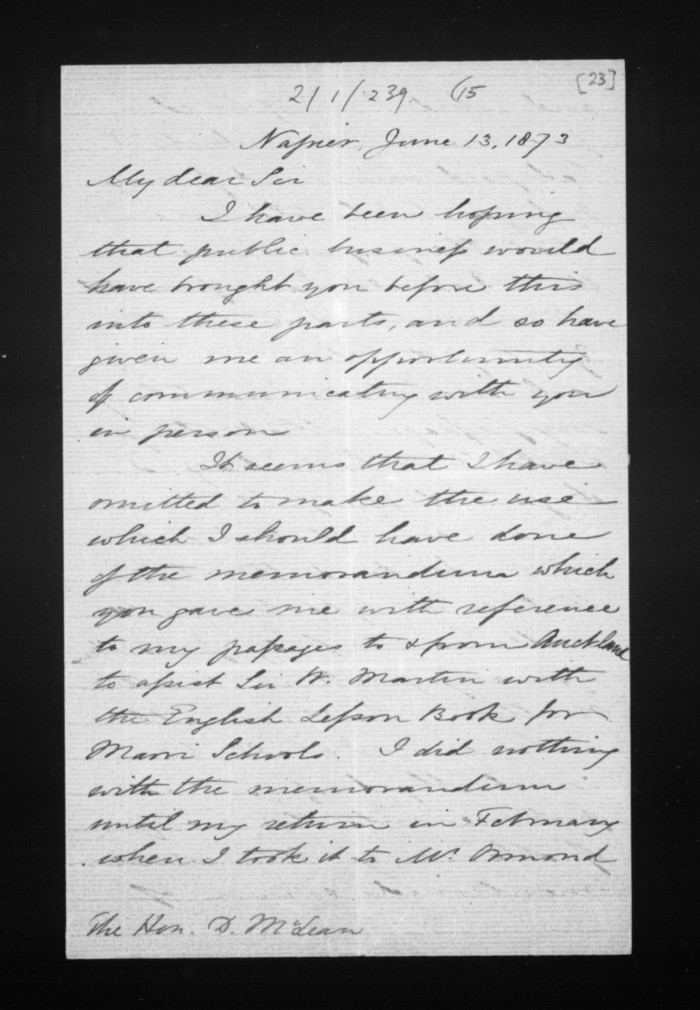 [23]
2/1/239 (15
Napier, June 13, 1873
My dear Sir
I have been hoping
that public business would
have brought you before this
into these parts, and so have
given me an opportunity
of communicating with you
in person
It seems that I have
omitted to make the use
which I should have done
of the memorandum which
you gave me with reference
to my passages to & from Auckland
to assist Sir W. Martin with
the English Lesson Book for
Maori Schools. I did nothing
with the memorandum
until my return in February
when I took it to Mr. Ormond
The Hon. D. McLean